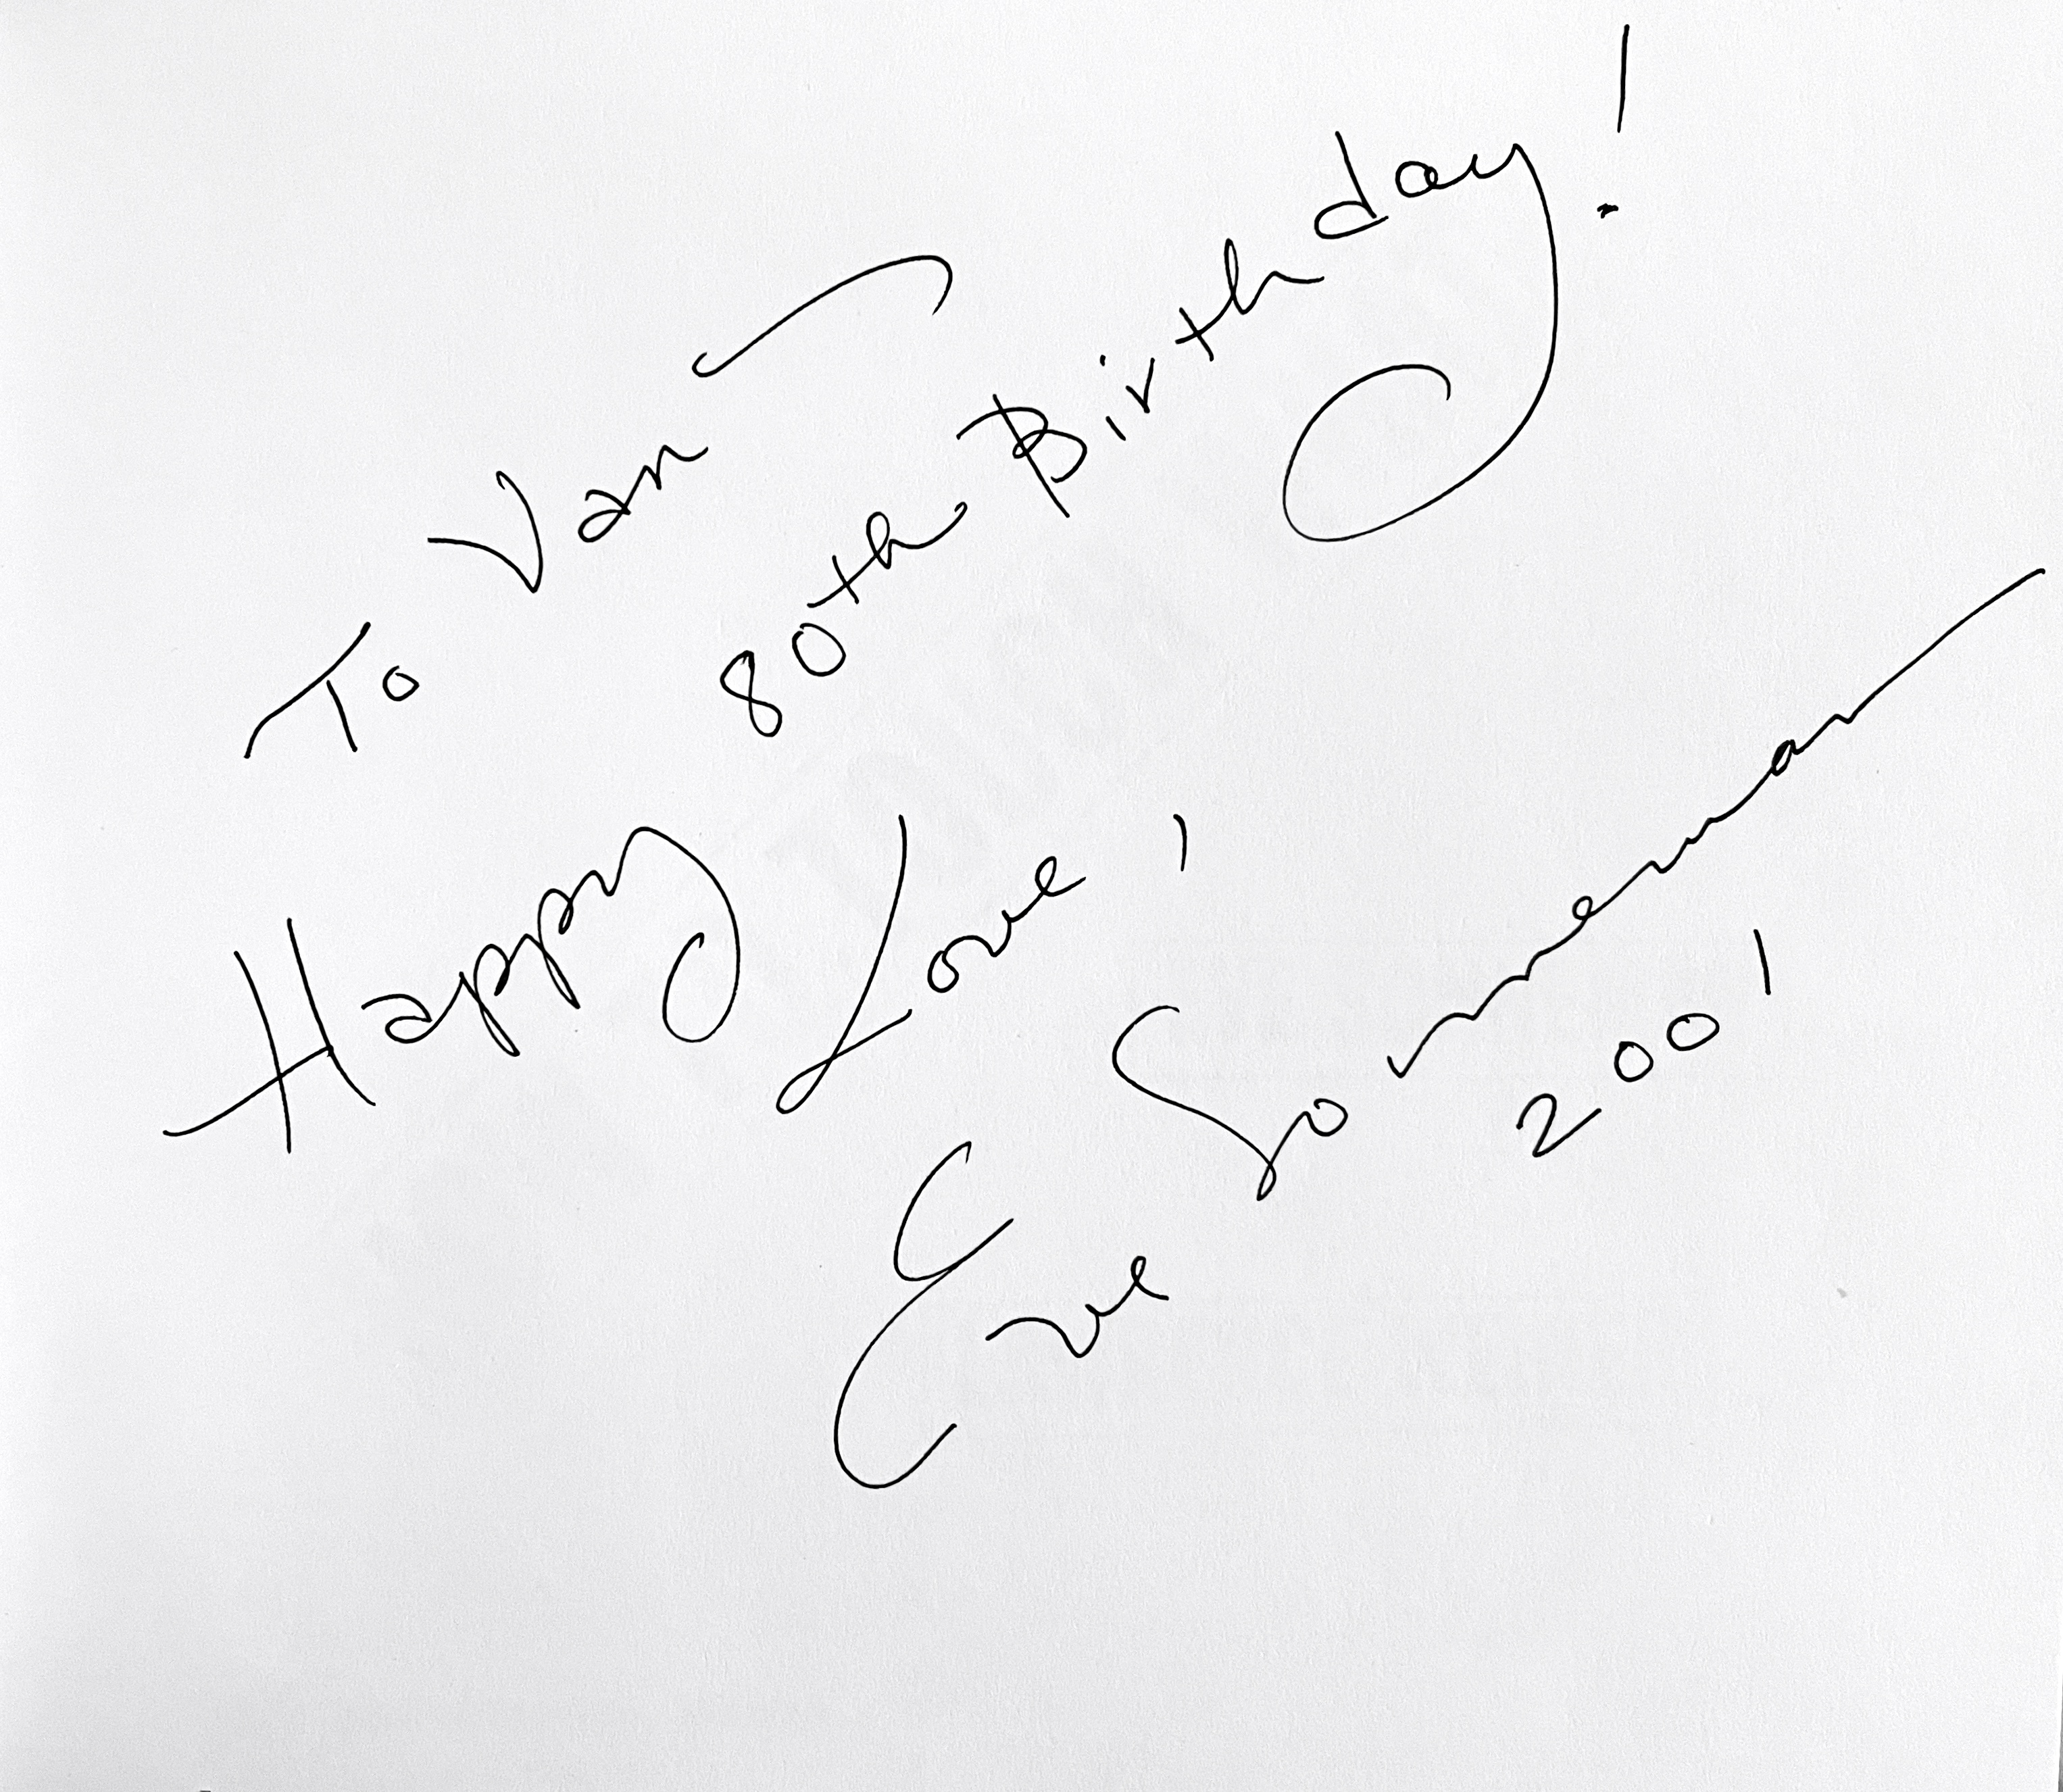 To Van —
Happy 80th Birthday!
Love,
Eve Sonneman
2001